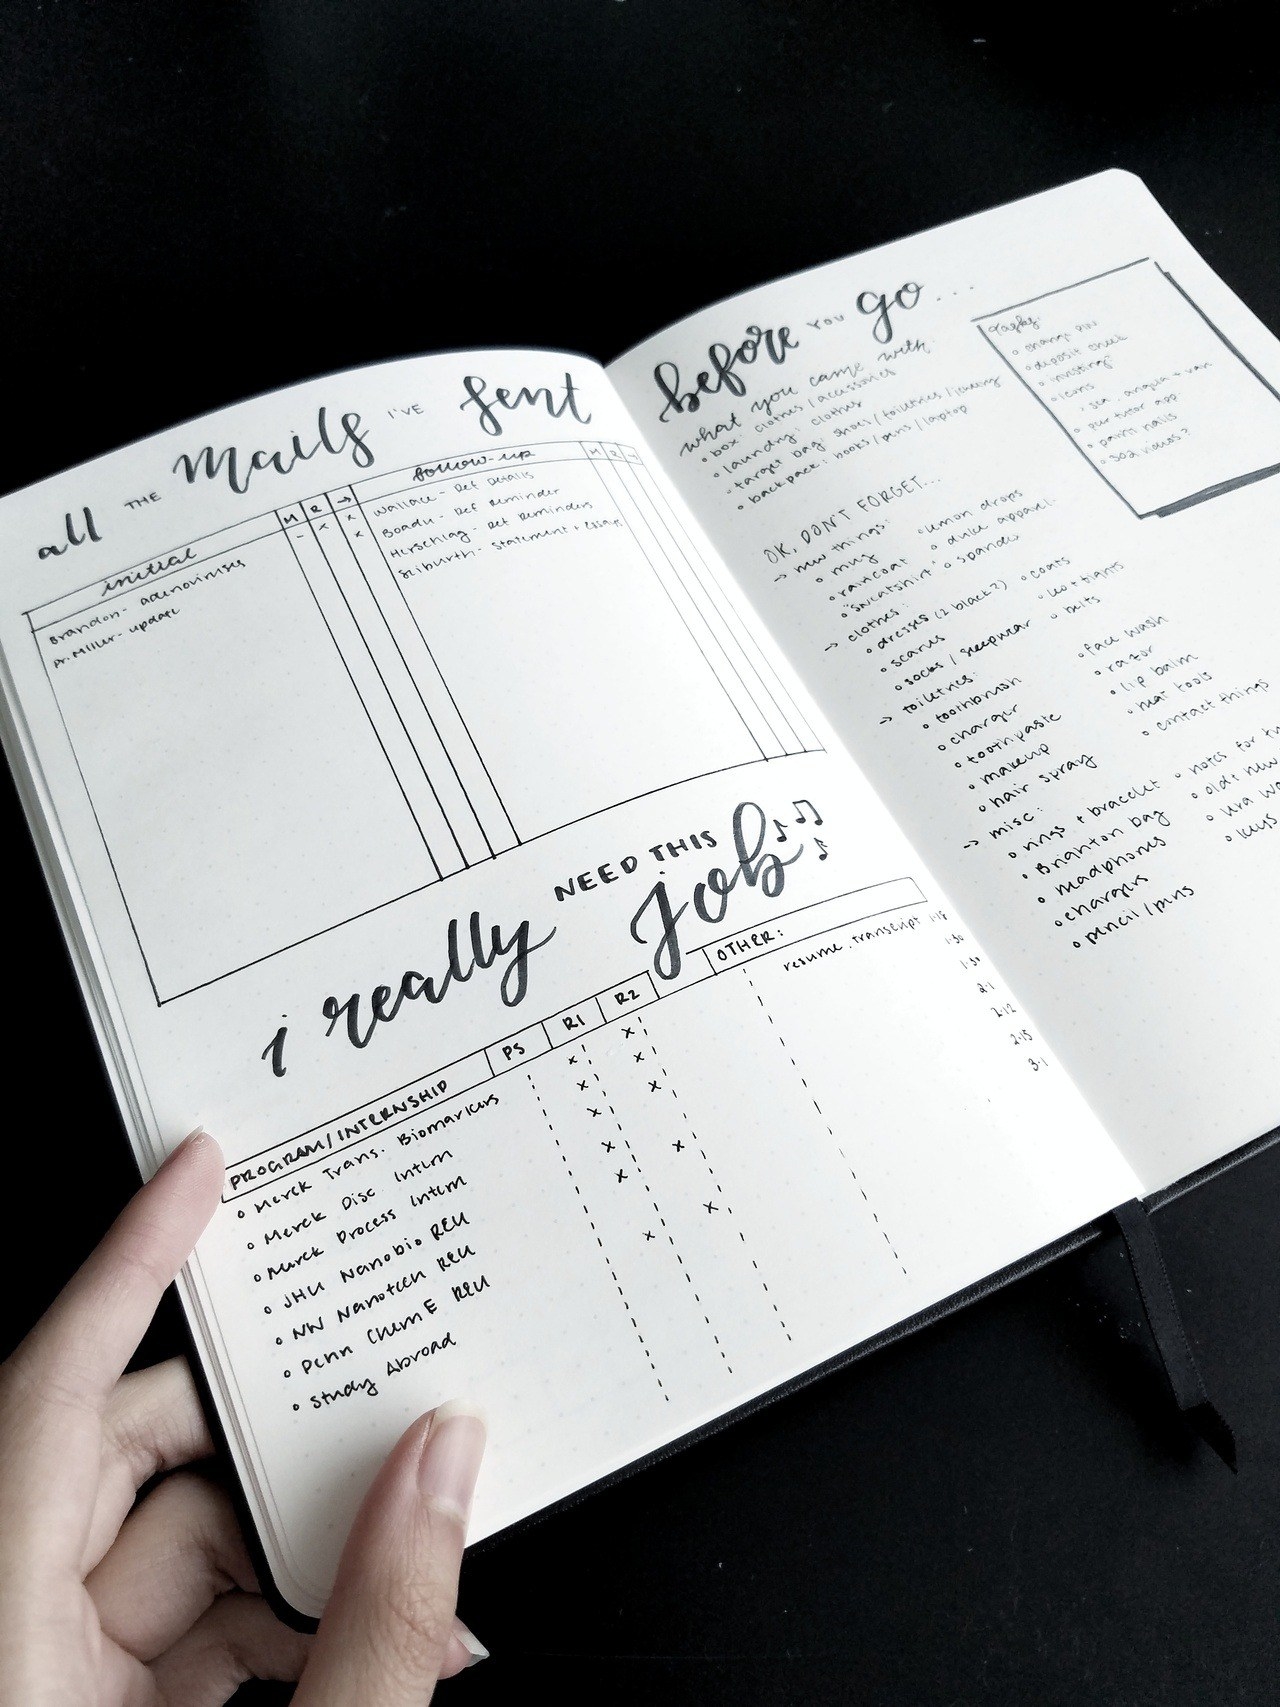 all THE Mails I'VE sent
initial M R → follow-up M R →
Brandon - adenoviruses - x x Wallace - Ref Details
Dr. Miller - update x Boadu - Ref reminder
Herschlag - Ref Reminders
Seiburth - Statement + Essays
i really NEED THIS job ♪♫♪
PROGRAM/INTERNSHIP PS R1 R2 OTHER:
• Merck Trans. Biomarkers x x resume, transcript 1.15
• Merck Disc Intern x x 1.30
• Merck Process Intern x x 1.30
• JHU Nanobio REU x x 2.1
• NW Nanotech REU x 2.12
• Penn Chem E REU x 2.15
• Study Abroad x 3.1
before YOU go...
what you came with:
• box: clothes / accessories
• laundry: clothes
• target bag: shoes / toiletries / jewelry
• backpack: books / pens / laptop
Tasks:
• change PIN
• deposit check
• investing:
• icons
• our tutor app
• paint nails
OK, DON'T FORGET...
→ new things:
• mug • lemon drops
• raincoat • duke apparel
• "sweatshirt" • spandex
→ clothes:
• dresses (2 black?) • coats
• scarves • leo + tights
• socks / sleepwear • belts
→ toiletries:
• toothbrush • face wash
• charger • razor
• toothpaste • lip balm
• makeup • hair tools
• hair spray • contact things
→ misc:
• rings + bracelet • notes for
• Brighton bag • old + new
• headphones
• chargers • keys
• pencil / pens